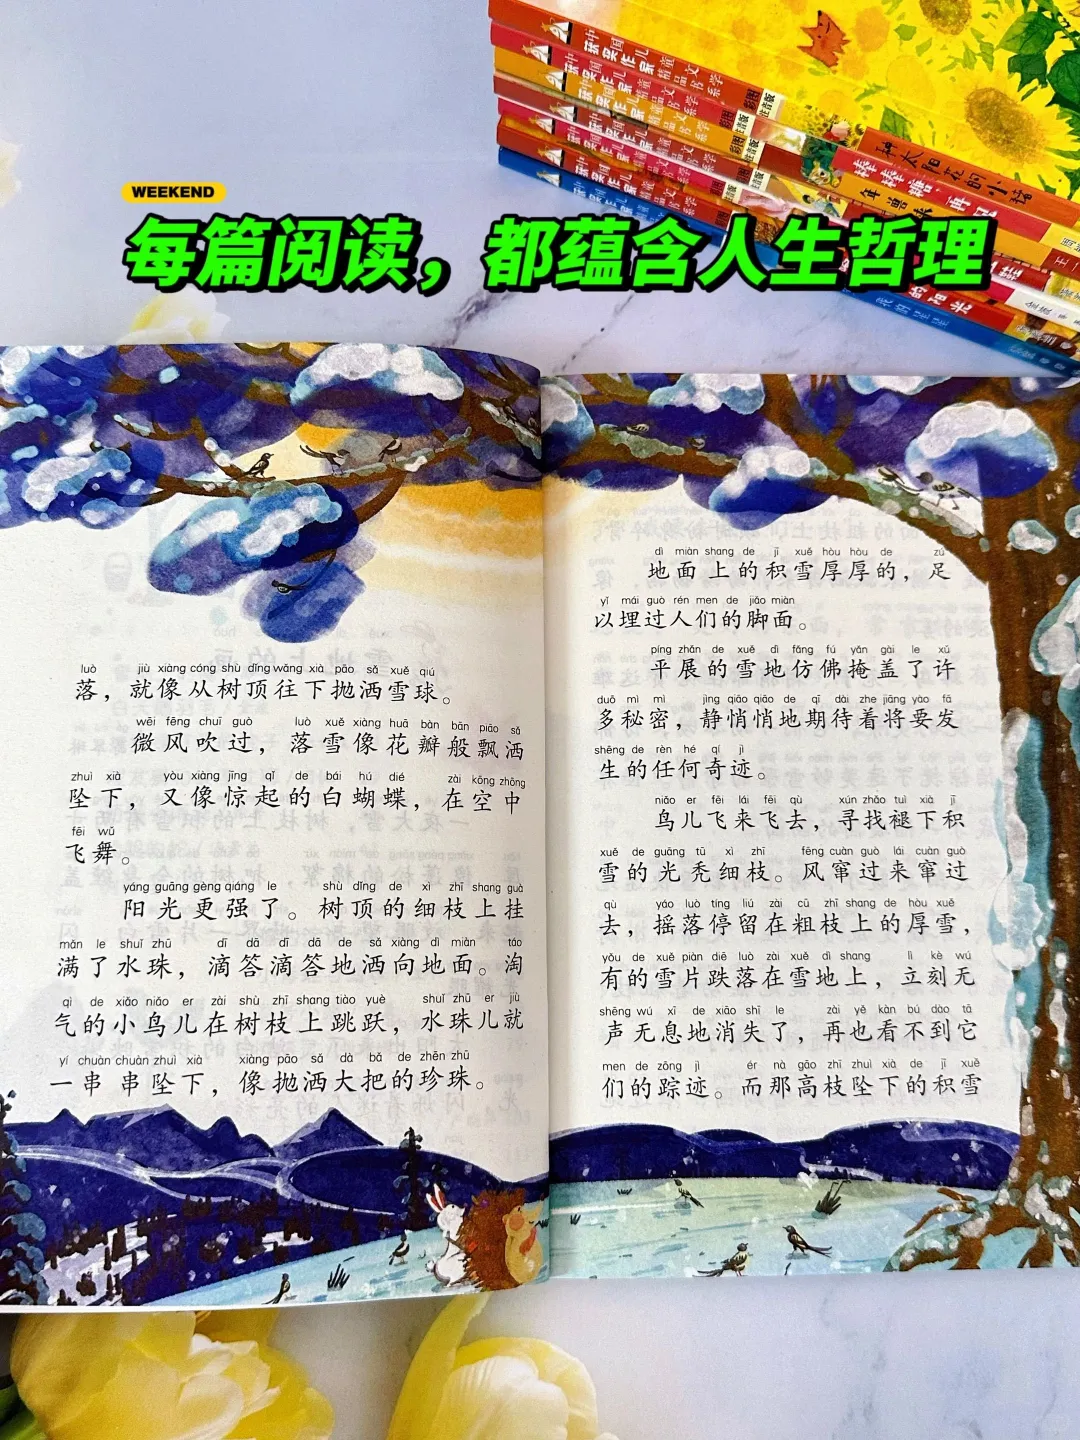 中国儿童文学
获奖作家精品书系
彩图
注音版
种太阳花的小猪
棒棒糖，再见
WEEKEND
每篇阅读，都蕴含人生哲理
luò jiù xiàng cóng shù dǐng wǎng xià pāo sǎ xuě qiú
落，就像从树顶往下抛洒雪球。
wēi fēng chuī guò luò xuě xiàng huā bàn bān piāo sǎ
微风吹过，落雪像花瓣般飘洒
zhuì xià yòu xiàng jīng qǐ de bái hú dié zài kōng zhōng
坠下，又像惊起的白蝴蝶，在空中
fēi wǔ
飞舞。
yáng guāng gèng qiáng le shù dǐng de xì zhī shang guà
阳光更强了。树顶的细枝上挂
mǎn le shuǐ zhū dī dā dī dā de sǎ xiàng dì miàn táo
满了水珠，滴答滴答地洒向地面。淘
qì de xiǎo niǎo er zài shù zhī shang tiào yuè shuǐ zhū er jiù
气的小鸟儿在树枝上跳跃，水珠儿就
yí chuàn chuàn zhuì xià xiàng pāo sǎ dà bǎ de zhēn zhū
一串串坠下，像抛洒大把的珍珠。
dì miàn shang de jī xuě hòu hòu de zú
地面上的积雪厚厚的，足
yǐ mái guò rén men de jiǎo miàn
以埋过人们的脚面。
píng zhǎn de xuě dì fǎng fú yǎn gài le xǔ
平展的雪地仿佛掩盖了许
duō mì mì jìng qiāo qiāo de qī dài zhe jiāng yào fā
多秘密，静悄悄地期待着将要发
shēng de rèn hé qí jì
生的任何奇迹。
niǎo er fēi lái fēi qù xún zhǎo tuì xià jī
鸟儿飞来飞去，寻找褪下积
xuě de guāng tū xì zhī fēng cuàn guò lái cuàn guò
雪的光秃细枝。风窜过来窜过
qù yáo luò tíng liú zài cū zhī shang de hòu xuě
去，摇落停留在粗枝上的厚雪，
yǒu de xuě piàn diē luò zài xuě dì shang lì kè wú
有的雪片跌落在雪地上，立刻无
shēng wú xī de xiāo shī le zài yě kàn bú dào tā
声无息地消失了，再也看不到它
men de zōng jì ér nà gāo zhī zhuì xià de jī xuě
们的踪迹。而那高枝坠下的积雪